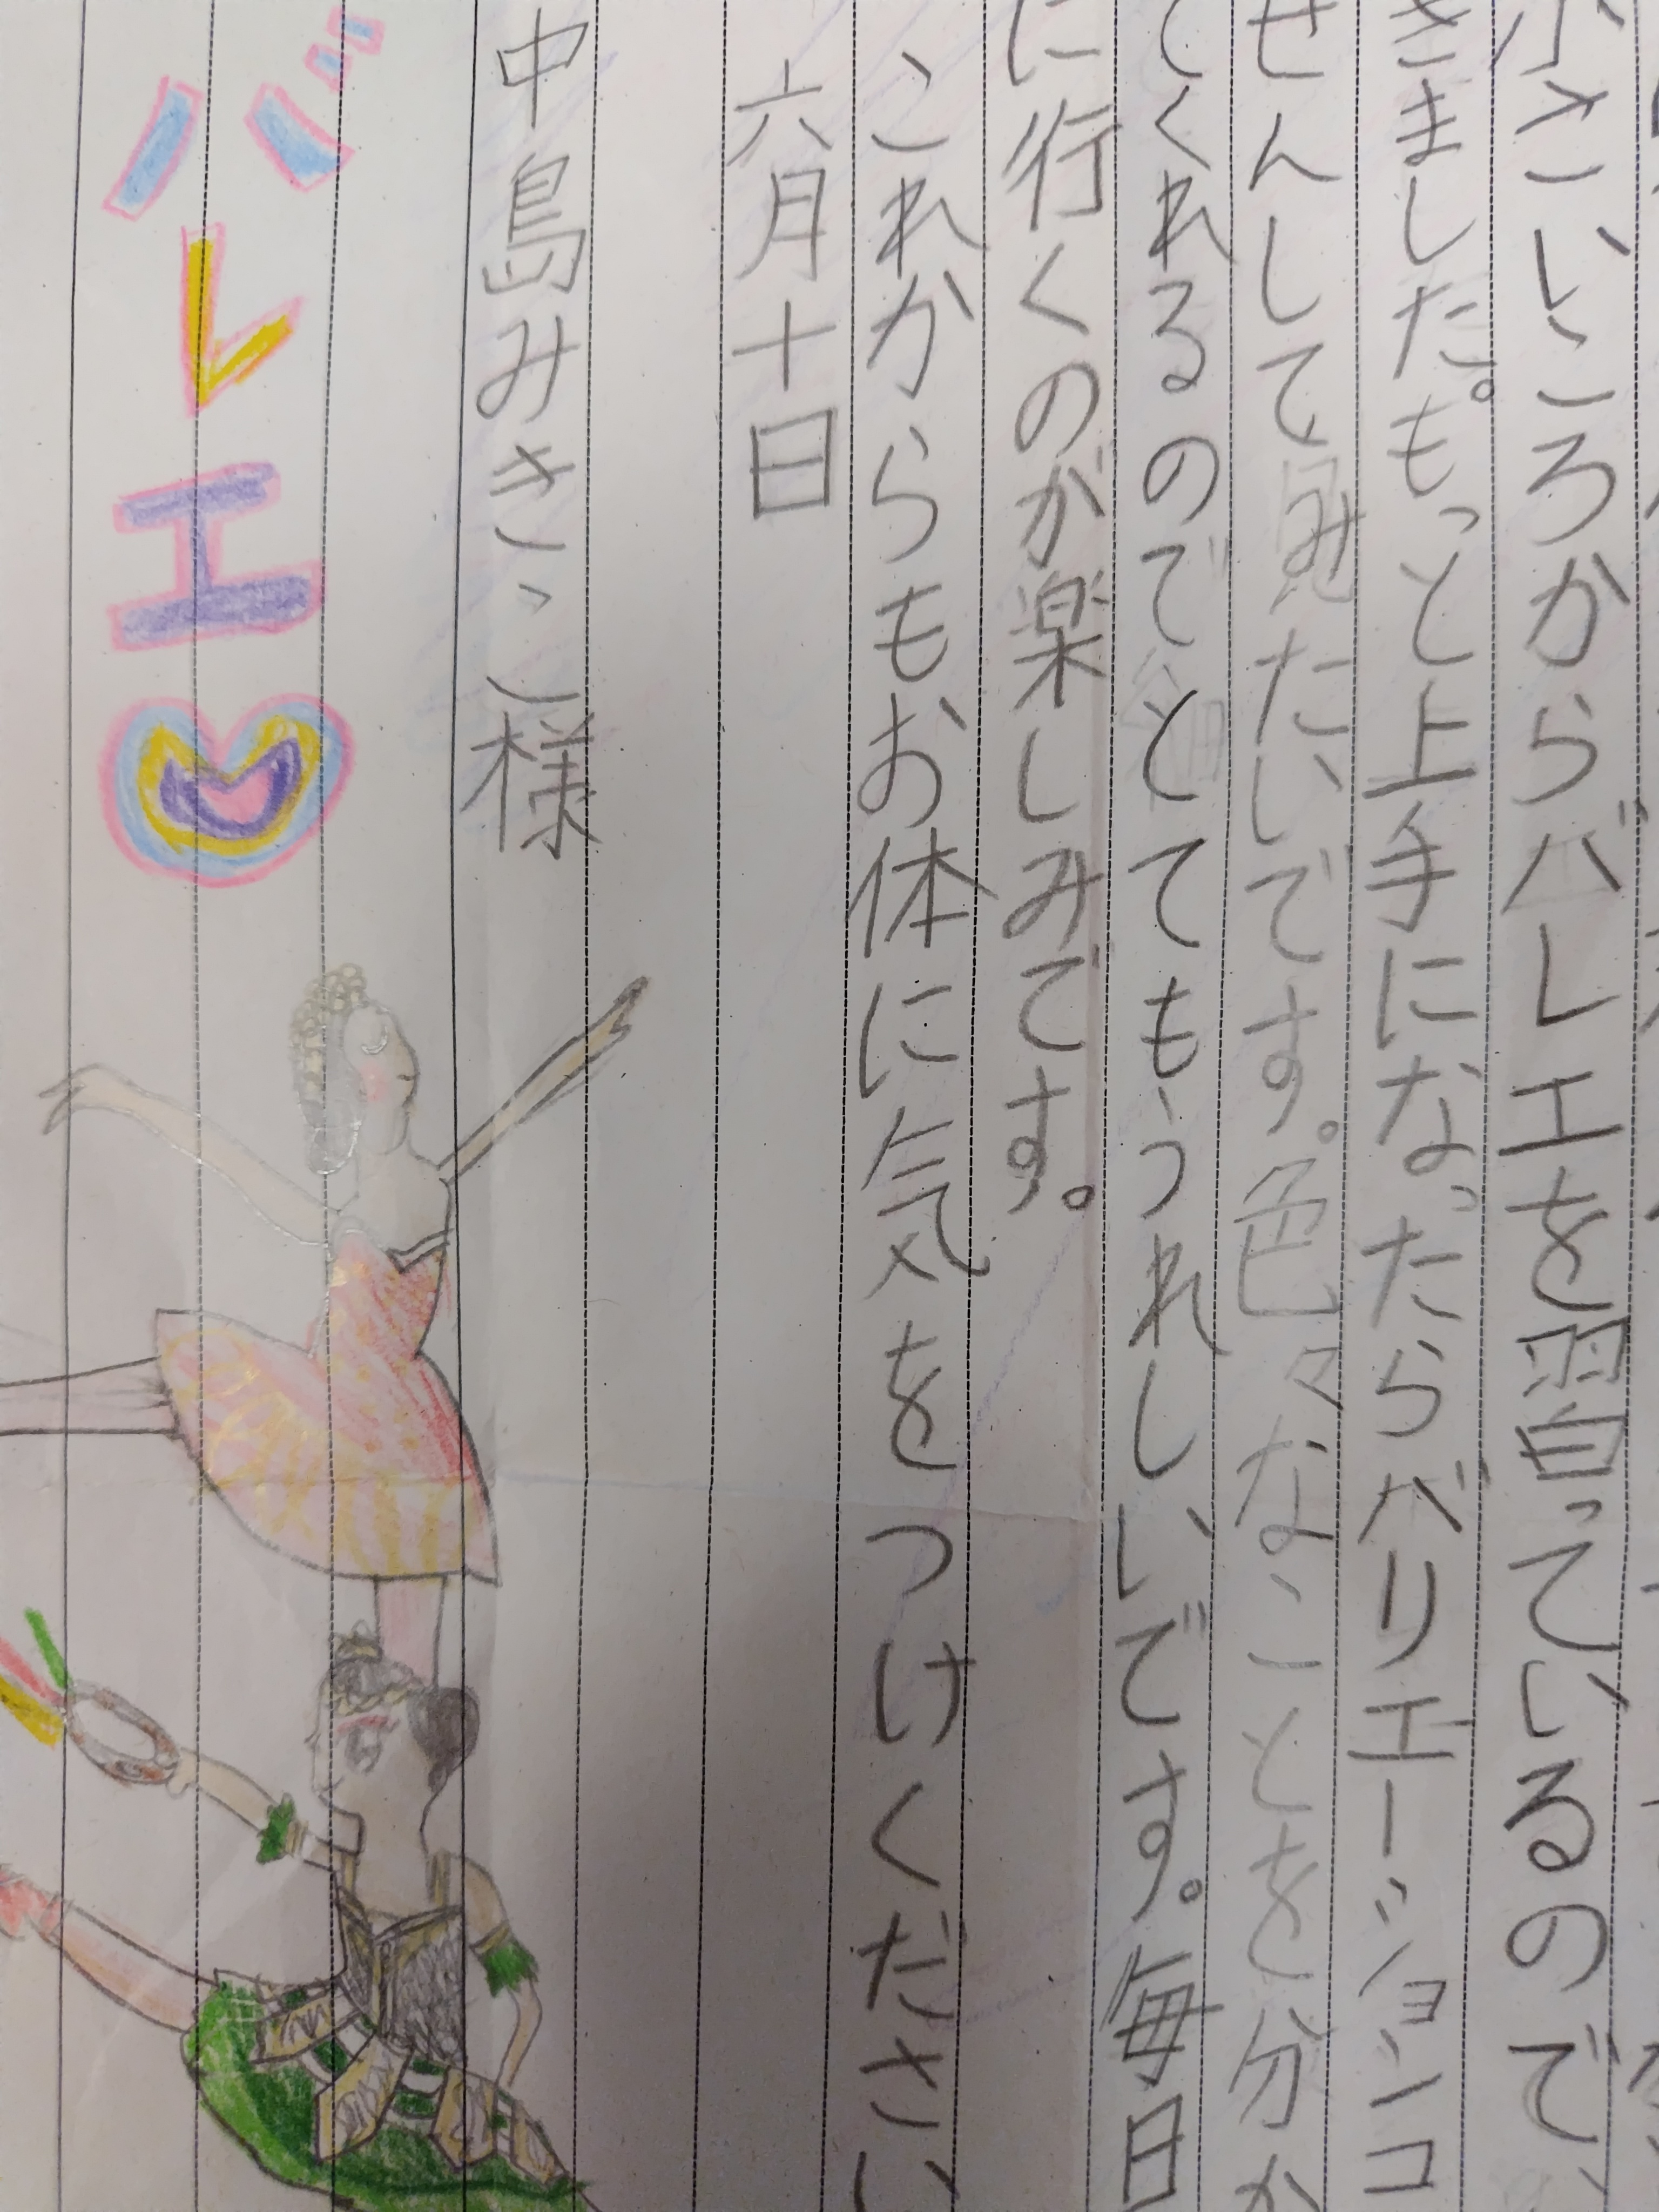 小さいころからバレエを習っているので、
きました。もっと上手になったらバリエーションコ
せんしてみたいです。色々なことを分か
てくれるのでとてもうれしいです。毎日
に行くのが楽しみです。
これからもお体に気をつけください
六月十日
中島みきこ様
バレエ